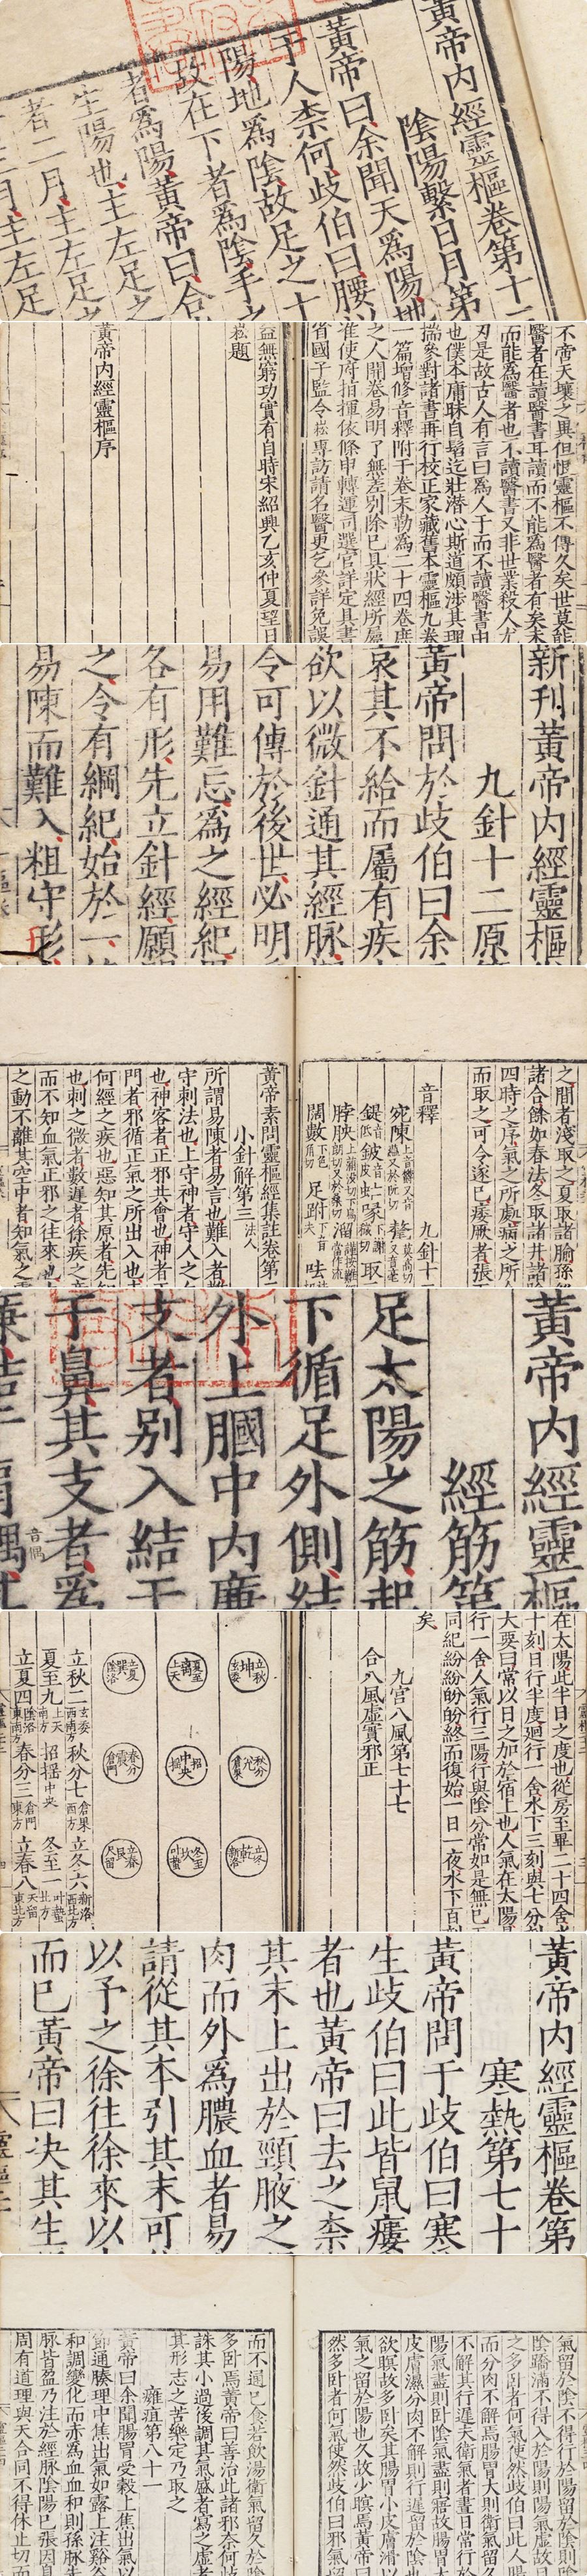 黃帝內經靈樞卷第十
陰陽繫日月第
黃帝曰余聞天爲陽地
于人柰何歧伯曰腰以
陽地爲陰故足之十
故在下者爲陰手之
者爲陽黃帝曰合
生陽也主左足之
者二月主左足之
三月主左足
不啻天壤之異但恨靈樞不傳久矣世莫能
醫者在讀醫書耳讀而不能爲醫者有矣未
而能爲醫者也不讀醫書又非世業殺人尤
刃是故古人有言曰爲人子而不讀醫書由
也僕本庸昧自髫迄壯潛心斯道頗涉其理
揣參對諸書再行校正家藏舊本靈樞九卷
一篇增修音釋附于卷末勒爲二十四卷庶
之人開卷易明了無差別除已具狀經所屬
准使府指揮依條申轉運司選官詳定具書
省國子監令崧專訪請名醫更乞參詳免誤
益無窮功實有自時宋紹興乙亥仲夏望日
崧題
黃帝內經靈樞序
新刊黃帝內經靈樞
九針十二原
黃帝問於歧伯曰余
哀其不給而屬有疾
欲以微針通其經脉
令可傳於後世必明
易用難忘爲之經紀
各有形先立針經願
之令有綱紀始於一
易陳而難入粗守形
之間者淺取之夏取諸腧孫
諸合餘如春法冬取諸井諸
四時之序氣之所處病之所
而取之可令遂已痿厥者張
音釋
九針十
宛陳
鍉 鈹
闊數 足跗 呿
黃帝素問靈樞經集註卷第二
小針解第三法人
所謂易陳者易言也難入者
守刺法也上守神者守人之
也神客者正邪共會也神者
門者邪循正氣之所出入也
何經之疾也惡知其原者先
也刺之微者數遲者徐疾之
而不知血氣正邪之往來也
之動不離其空中者知氣之
黃帝內經靈樞
經筋第
足太陽之筋起
下循足外側結
外上膕中內廉
支者別入結于
于鼻其支者爲
音隅
在太陽此半日之度也從房至畢二十四舍
十刻日行半度𢌞行一舍水下三刻與七分
大要曰常以日之加於宿上也人氣在太陽
行一舍人氣行三陽行與陰分常如是無已
同紀紛紛盼盼終而復始一日一夜水下百
矣
九宮八風第七十七
合八風虛實邪正
立秋坤玄委
秋分兌倉果
立冬乾新洛
夏至離上天
中央招搖
冬至坎叶蟄
立夏巽陰洛
春分震倉門
立春艮天留
立秋二玄委西南方 秋分七倉果西方 立冬六新洛西北方
夏至九上天南方 招搖中央 冬至一叶蟄北方
立夏四陰洛東南方 春分三倉門東方 立春八天留東北方
黃帝內經靈樞卷第
寒熱第七十
黃帝問于歧伯曰寒
生歧伯曰此皆鼠瘻
者也黃帝曰去之柰
其末上出於頸腋之
肉而外爲膿血者易
請從其本引其末可
以予之徐往徐來以
而已黃帝曰決其生
氣留於陰不得行於陽留於陰則
陰蹻滿不得入於陽則陽氣虛故
之多臥者何氣使然歧伯曰此人
而分肉不解焉腸胃大則衛氣留
不解其行遲夫衛氣者晝日常行
陽氣盡則臥陰氣盡則寤故腸胃
皮膚濕分肉不解則行遲留於陰
欲瞑故多臥矣其腸胃小皮膚滑以
氣之留於陽也久故少瞑焉黃帝曰
然多臥者何氣使然歧伯曰邪氣
而不通已食若飲湯衛氣留久於陰
多臥焉黃帝曰善治此諸邪奈何歧
誅其小過後調其氣盛者寫之虛者
其形志之苦樂定乃取之
雍疽第八十一
黃帝曰余聞腸胃受穀上焦出氣以
節通腠理中焦出氣如露上注谿谷
和調變化而赤爲血血和則孫脉先
脉皆盈乃注於經脉陰陽已張因息
周有道理與天合同不得休止切而